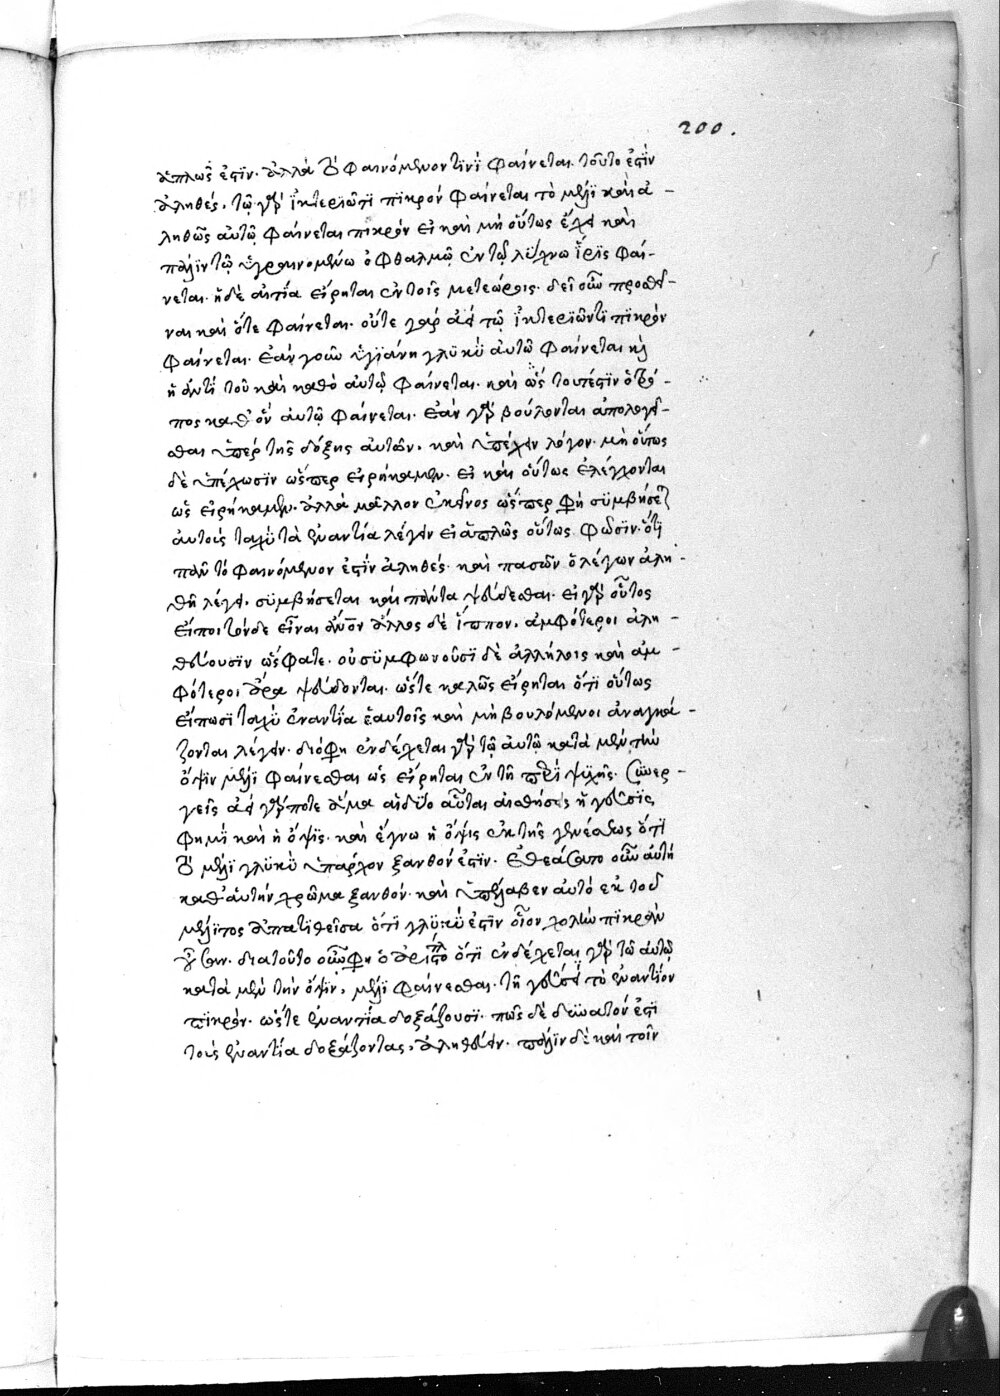 200.
ἁπλῶς ἐστϊν. ἀλλὰ τὸ φαινόμενον τϊνῒ φαίνεται. τοῦτο ἐστῒν
ἀληθές. τῷ γὰρ ἰκτεριῶτϊ πϊκρόν φαίνεται τὸ μέλϊ καὶ ἀ-
ληθῶς αὐτῷ φαίνεται πικρὸν εἰ καὶ μὴ οὕτως ἔχει καὶ
πάλϊν τῷ ὑγραινομένω ὀφθαλμῷ ἐν τῷ λύχνω ἶρϊς φαί-
νεται. ἡ δὲ αἰτία εἴρηται ἐν τοῖς μετεώροις. δεῖ οὖν προσθεῖ-
ναι καὶ ὅτε φαίνεται. οὔτε γαρ ἀεὶ τῷ ἰκτεριῶντϊ πϊκρὸν
φαίνεται. ἐὰν γοῦν ὑγϊάνη γλυκὺ αὐτῷ φαίνεται καὶ
ἢ ἀντὶ τοῦ καὶ καθὸ αὐτῷ φαίνεται. καὶ ὡς τουτέστϊν ὁ τρό-
πος καθ' ὃν αὐτῷ φαίνεται. ἐὰν γὰρ βούλονται ἀπολογεῖ-
σθαι ὑπὲρ τῆς δόξης αὐτῶν. καὶ ὑπέχειν λόγον. μὴ οὕτως
δὲ ὑπέχωσϊν ὥσπερ εἰρήκαμεν. εἰ καὶ οὕτως ἐλέγχονται
ὡς εἰρήκαμεν. ἀλλὰ μᾶλλον ἐκεῖνος ὥσπερ φη συμβήσεται
αὐτοῖς ταχὺ τὰ ἐναντία λέγειν εἰ ἁπλῶς οὕτως φῶσϊν. ὅτϊ
πᾶν τὸ φαινόμενον ἐστὶν ἀληθές. καὶ πασῶν ὁ λέγων ἀλη-
θῆ λέγει. συμβήσεται καὶ πάντα ψεύδεσθαι. εἰ γὰρ οὗτος
εἴποι τόνδε εἶναι ἄνον ἄλλος δὲ ἵππον. ἀμφότεροι ἀλη-
θεύουσϊν ὥς φατε. οὐ συμφωνοῦσϊ δὲ ἀλλήλοις καὶ ἀμ-
φότεροι ἄρα ψεύδονται. ὥστε καλῶς εἴρηται ὅτϊ οὕτως
εἴπωσϊ ταχὺ ἐναντία ἑαυτοῖς καὶ μὴ βουλόμενοι ἀναγκά-
ζονται λέγειν. διό φη ἐνδέχεται γὰρ τῷ αὐτῷ κατὰ μὲν τὴν
ὄψϊν μέλϊ φαίνεσθαι ὡς εἴρηται ἐν τῇ περὶ ψϋχῆς. συνερ-
γεῖς ἀεὶ γὰρ ποτε ἅμα αἱ δύο αὗται αἰσθήσεις ἡ γεῦσϊς
φημὶ καὶ ἡ ὄψϊς. καὶ ἔγνω ἡ ὄψις ἐκ τῆς γενέσεως ὅτι
τὸ μέλϊ γλϋκὺ ὑπάρχον ξανθόν ἐστϊν. ἐθεάσατο οὖν αὐτὴ
καθ' αὑτὴν χρῶμα ξανθόν. καὶ ὑπέλαβεν αὐτό ἐκ τοῦ
μέλϊτος ἀπατϊθεῖσα ὅτϊ γλυκύ ἐστϊν οἷον χολὴν πϊκρὰν
οὖσαν. διατοῦτο οὖν φη ὁ ἀριστοτλ ὅτϊ ἐνδέχεται γὰρ τῷ αὐτῷ
κατὰ μὲν τὴν ὄψϊν. μέλϊ φαίνεσθαι. τῇ γεύσει τὸ ἐναντίον
πϊκρὸν. ὥστε ἐναντία δοξάζουσϊ. πῶς δὲ δυνατόν ἐστϊ
τοὺς ἐναντία δοξάζοντας. ἀληθεύειν. πάλϊν δὲ καὶ τοῖν